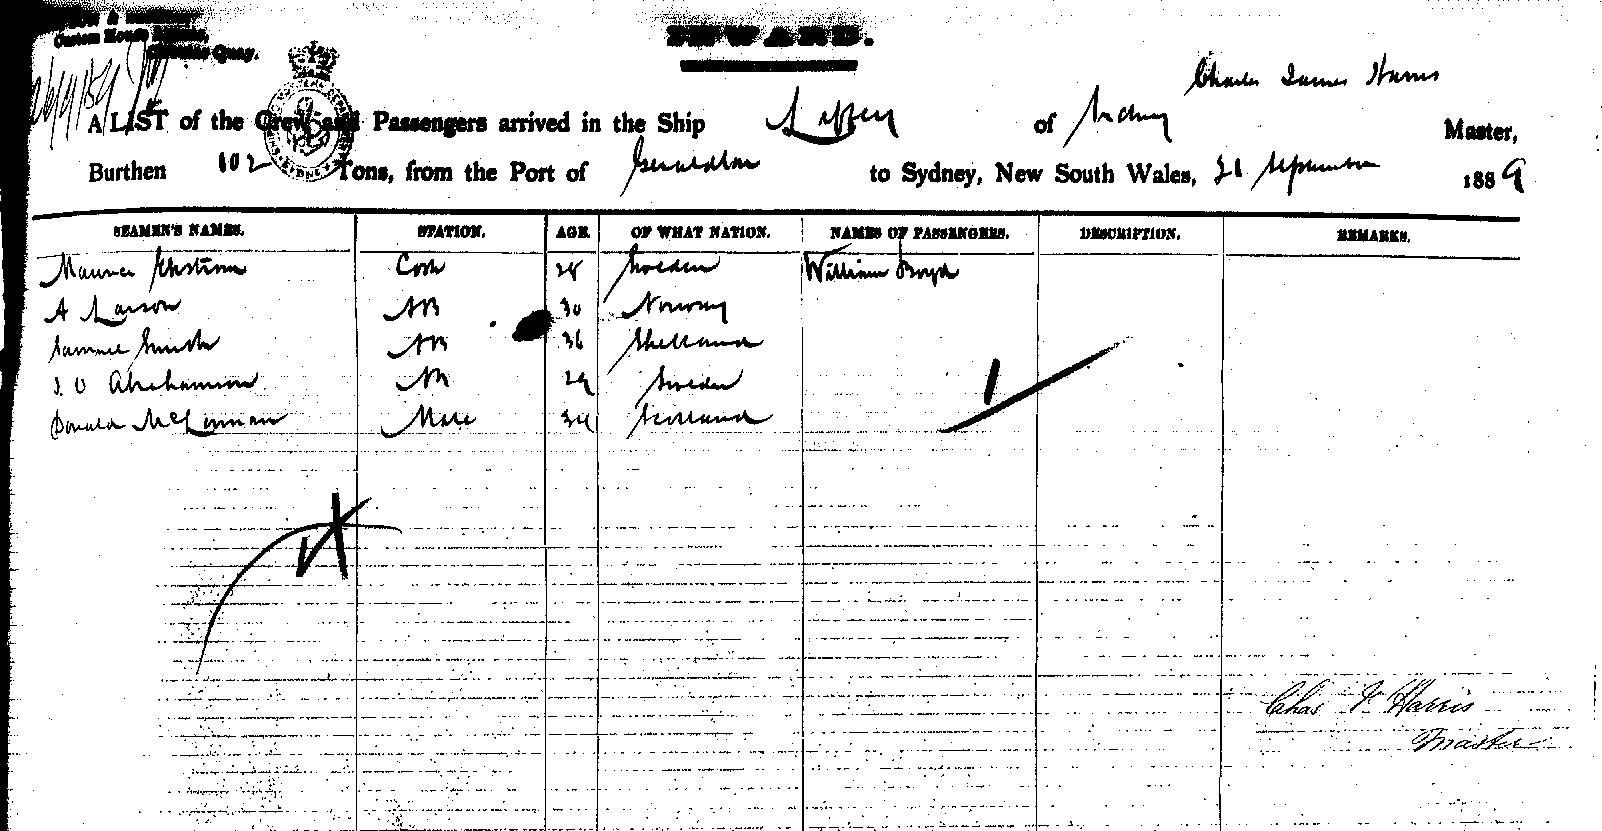 Custom House
Quay.
INWARD.
26/9/89
Charles James Harris
A LIST of the Crew and Passengers arrived in the Ship Liffey of Sydney Master,
Burthen 102 Tons, from the Port of Geraldton to Sydney, New South Wales, 21 September 1889
SEAMEN'S NAMES. STATION. AGE. OF WHAT NATION. NAMES OF PASSENGERS. DESCRIPTION. REMARKS.
Maurice Cook 28 Sweden William Boyd
A Larson AB 30 Norway
Samuel Smith AB 36 Shetland
J. O Abrahamson AB 29 Sweden
Donald McLennan Mate 34 Scotland
1
Chas J Harris
Master